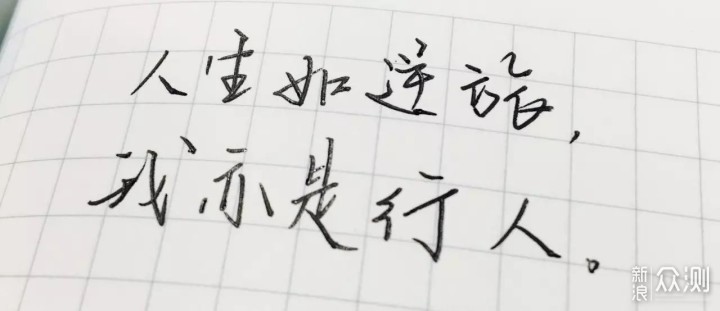 人生如逆旅，
我亦是行人。
新浪众测